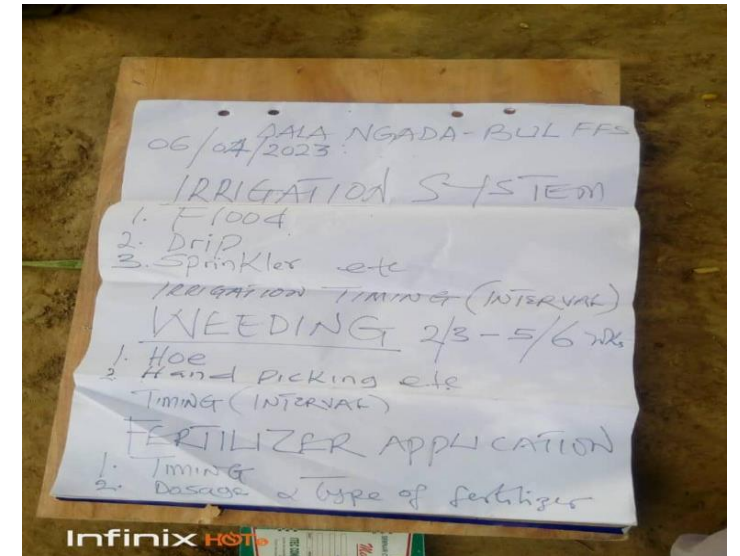 DALA NGADA-BUL FFS
06/04/2023
IRRIGATION SYSTEM
1. Flood
2. Drip
3. Sprinkler etc
IRRIGATION TIMING (INTERVAL)
WEEDING 2/3-5/6 wks
1. Hoe
2 Hand picking etc
TIMING (INTERVAL)
FERTILIZER APPLICATION
1. Timing
2. Dosage & type of fertilizer
Infinix HOT